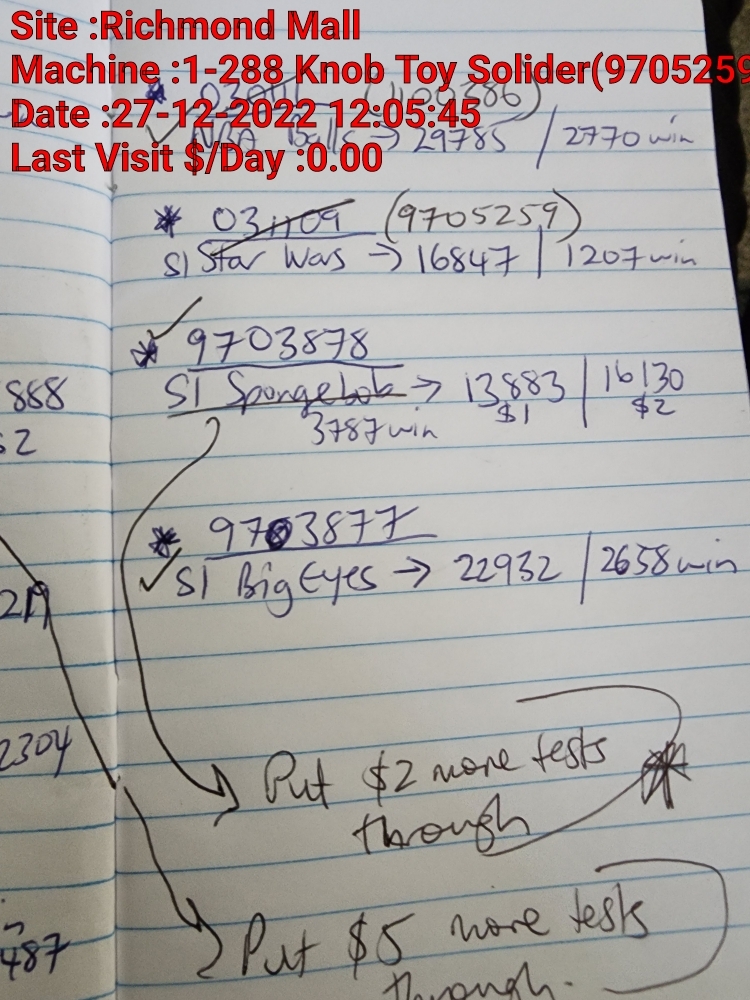 Site :Richmond Mall
Machine :1-288 Knob Toy Solider(9705259
Date :27-12-2022 12:05:45
Last Visit $/Day :0.00
balls → 29785 / 2770 win
* 031109 (9705259)
S1 Star Wars → 16847 | 1207 win
* 9703878
S1 Spongebob → 13883 | 16130
$1 $2
3787 win
* 9703877
S1 Big Eyes → 22932 / 2658 win
888
2304
Put $2 more tests
through
487
Put $5 more tests
through.